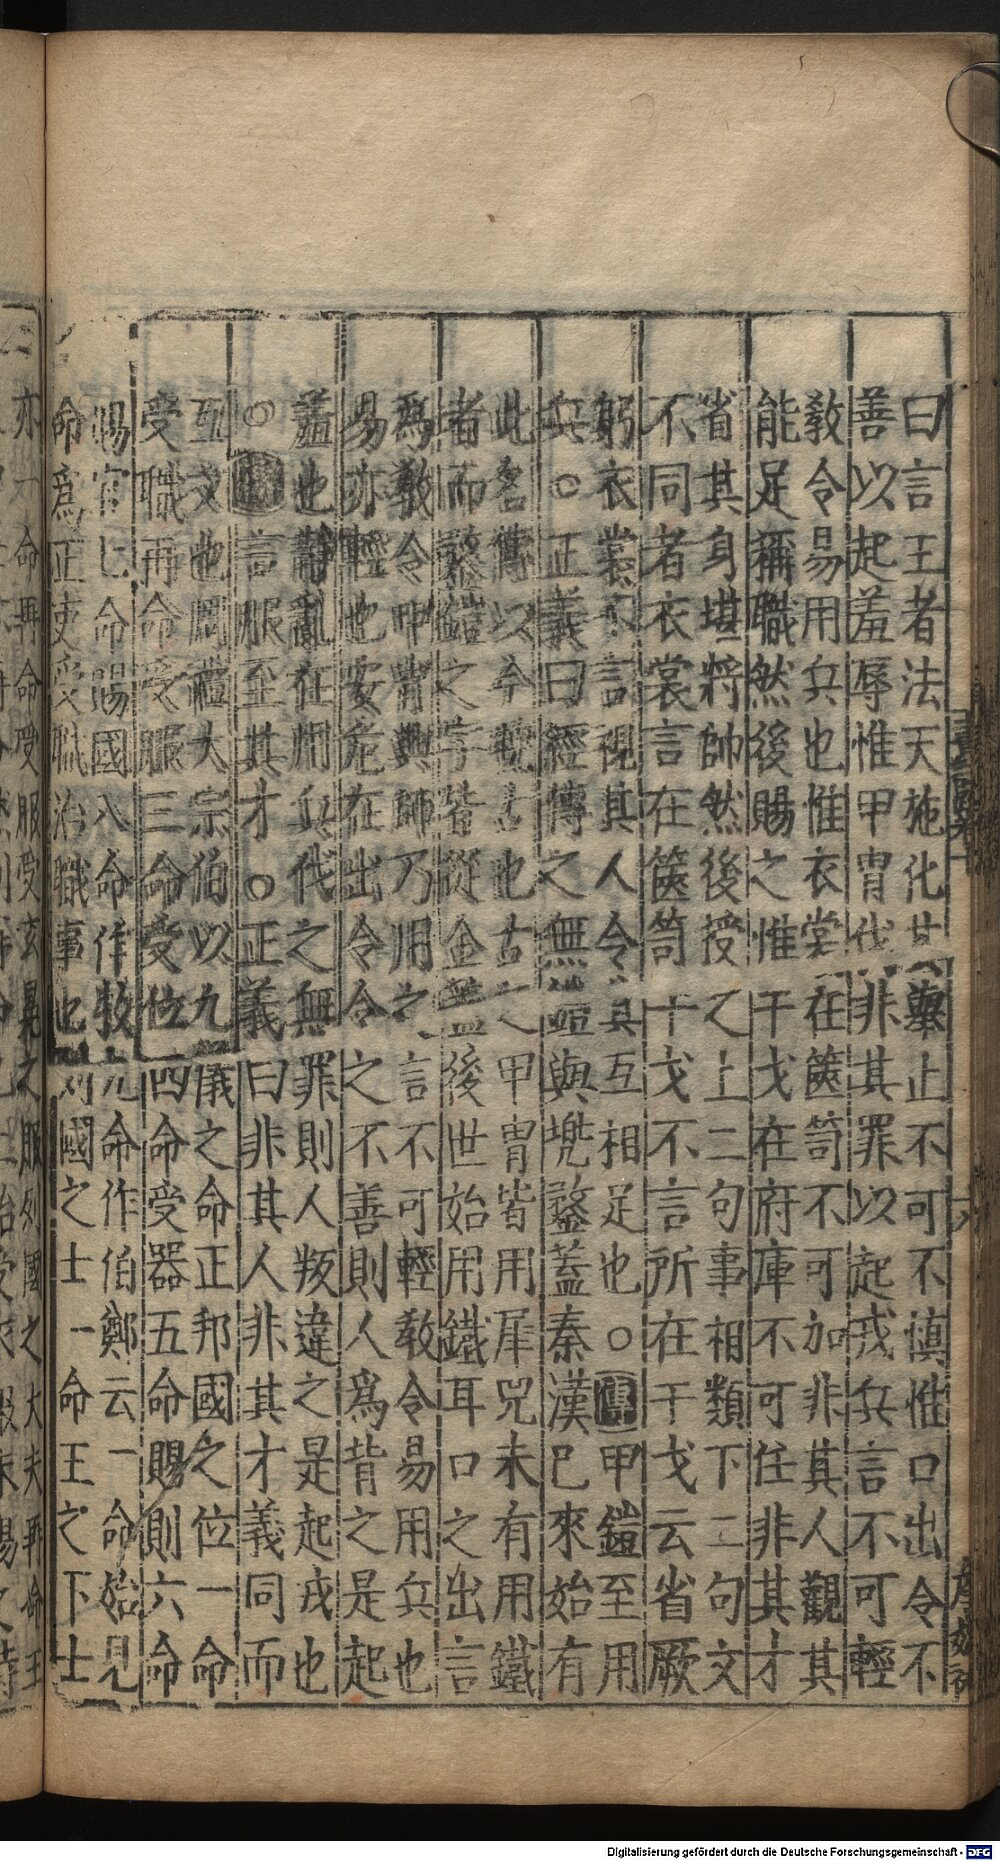 曰言王者法天施化其舉止不可不慎惟口出令不
善以起羞辱惟甲冑伐非其罪以起戎兵言不可輕
教令易用兵也惟衣裳在篋笥不可加非其人觀其
能足稱職然後賜之惟干戈在府庫不可任非其才
省其身堪將帥然後授之上二句事相類下二句文
不同者衣裳言在篋笥干戈不言所在干戈云省厥
躬衣裳不言視其人令其互相足也○傳甲鎧至用
兵○正義曰經傳之無鎧與兜鍪蓋秦漢已來始有
此名傳以今曉古也古之甲冑皆用犀兕未有用鐵
者而鍪鎧之字皆從金蓋後世始用鐵耳口之出言
為教令甲冑興師乃用之言不可輕教令易用兵也
易亦輕也安危在出令令之不善則人為背之是起
羞也靜亂在用兵伐之無罪則人叛違之是起戎也
○傳言服至其才○正義曰非其人非其才義同而
互文也周禮大宗伯以九儀之命正邦國之位一命
受職再命受服三命受位四命受器五命賜則六命
賜官七命賜國八命作牧九命作伯鄭云一命始見
命為正吏受職治職事也列國之士一命王之下士
亦一命再命受服受玄冕之服列國之大夫再命王
六
Digitalisierung gefördert durch die Deutsche Forschungsgemeinschaft - DFG